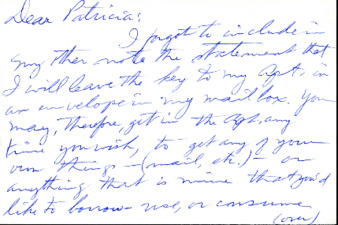 Dear Patricia:
I forgot to include in
my ther note the statement that
I will leave the key to my Apt. in
an envelope in my mail box. You
may, therefore, get in the Apt. any
time you wish, to get any of your
own things - (mail, etc.) - or
anything that is mine that you'd
like to borrow - use, or consume
(over)